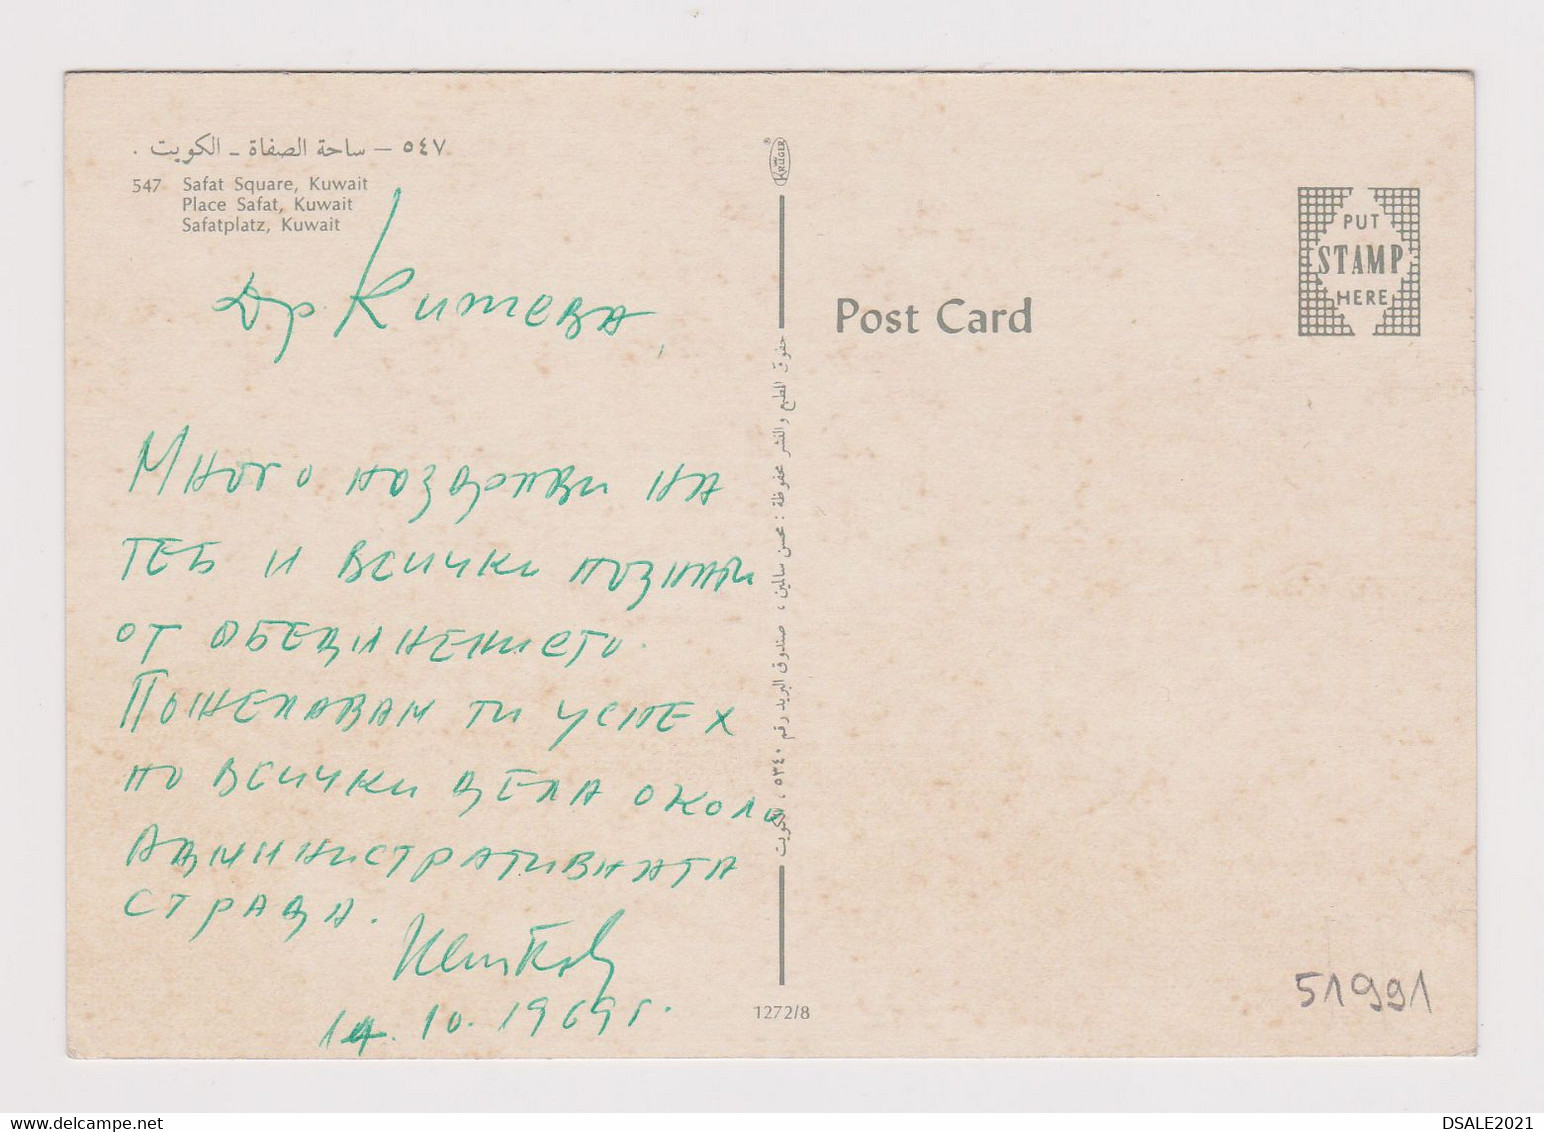 ٥٤٧ – ساحة الصفاة ـ الكويت .
547 Safat Square, Kuwait
Place Safat, Kuwait
Safatplatz, Kuwait
Др. Китева,
Много поздрави на
теб и всички познати
от обединението.
Пожелавам ти успех
по всички дела около
административната
страда.
14.10.1969 г.
KRÜGER
حقوق الطبع والنشر محفوظة : محسن سالمين ، صندوق البريد رقم ٥٣٤٠ ، الكويت
1272/8
Post Card
PUT
STAMP
HERE
51991
DSALE2021